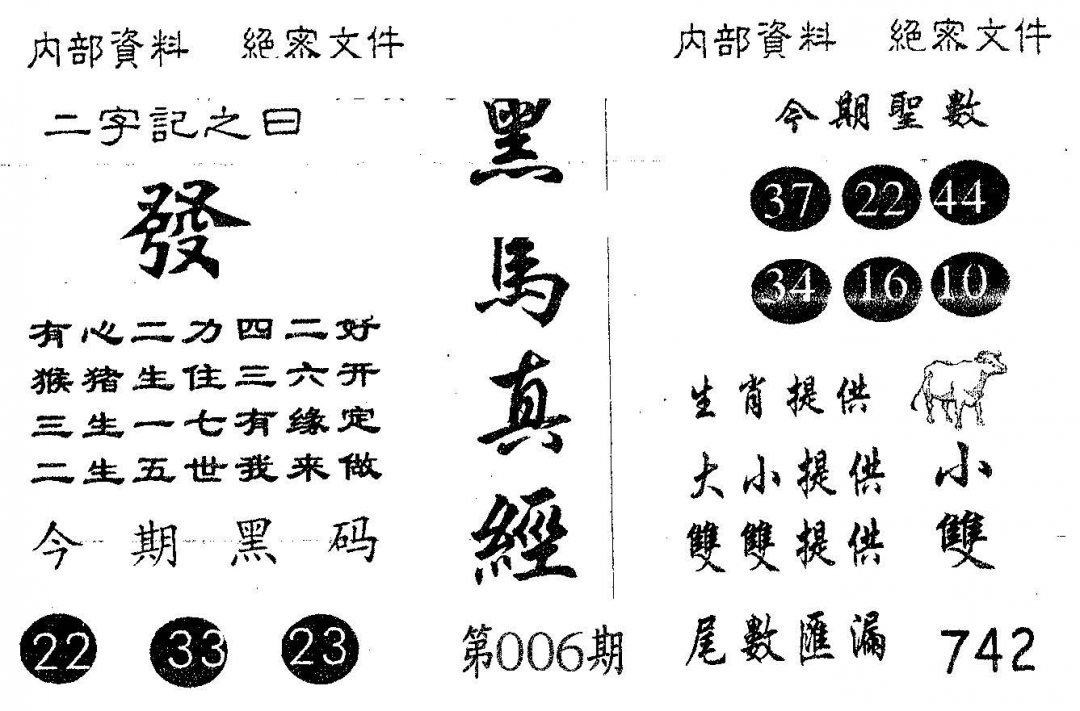 内部資料　絕密文件
二字記之曰
發
有心二力四二好
猴猪生住三六开
三生一七有缘定
二生五世我来做
今期黑码
22 33 23
黑馬真經
第006期
内部資料　絕密文件
今期聖數
37 22 44
34 16 10
生肖提供
大小提供 小
雙雙提供 雙
尾數匯漏 742